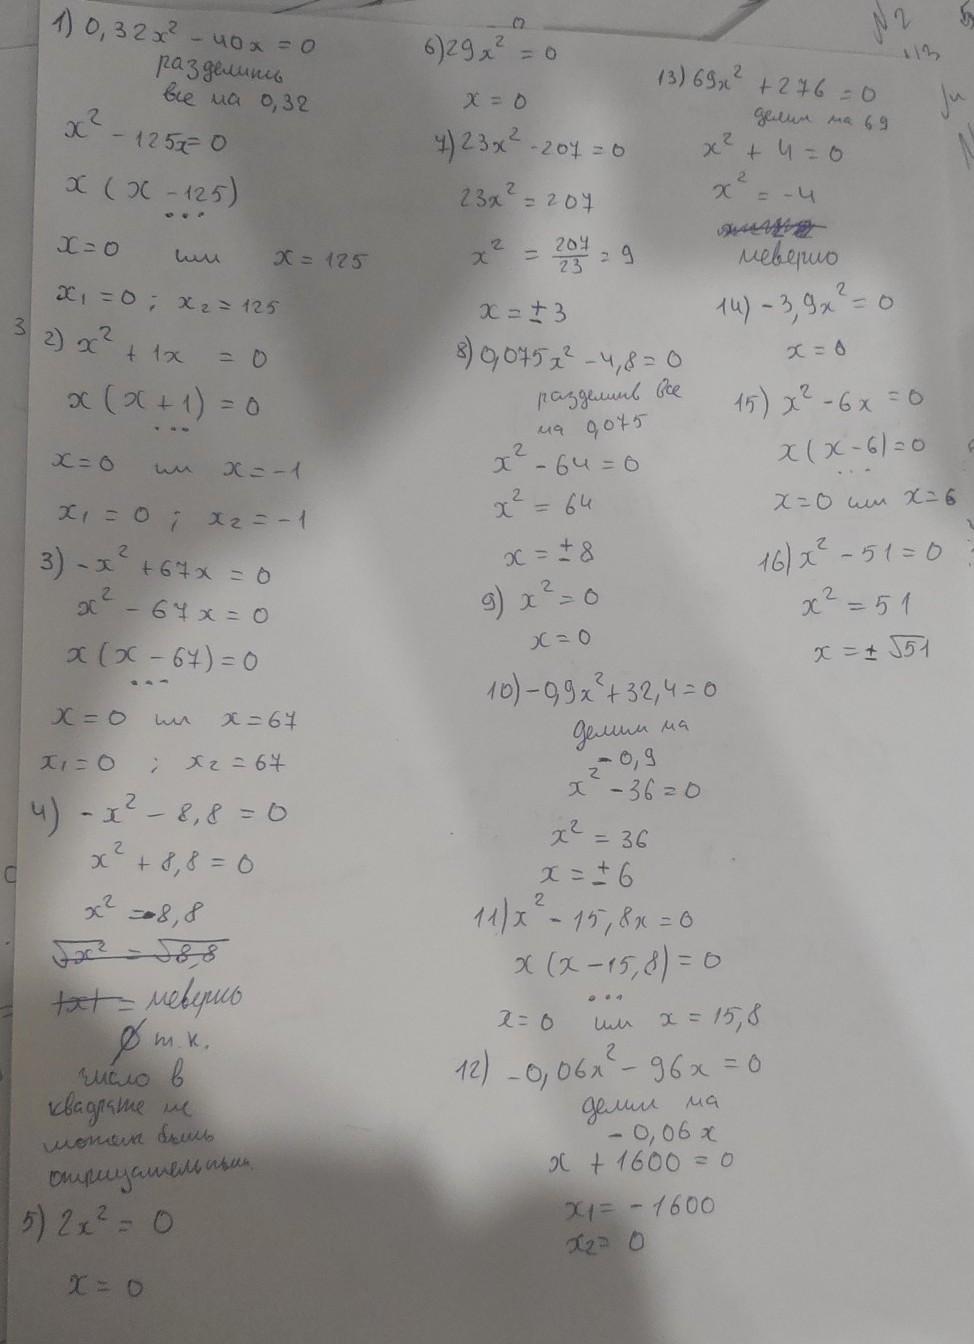 1) 0,32x² - 40x = 0
разделить
все на 0,32
x² - 125x = 0
x (x - 125)
x = 0 или x = 125
x₁ = 0 ; x₂ = 125
2) x² + 1x = 0
x (x + 1) = 0
x = 0 или x = -1
x₁ = 0 ; x₂ = -1
3) -x² + 67x = 0
x² - 67x = 0
x (x - 67) = 0
x = 0 или x = 67
x₁ = 0 ; x₂ = 67
4) -x² - 8,8 = 0
x² + 8,8 = 0
x² = -8,8
√x² = √8,8
|x| = неверно
∅ т.к.
число в
квадрате не
может быть
отрицательным.
5) 2x² = 0
x = 0
6) 29x² = 0
x = 0
7) 23x² - 207 = 0
23x² = 207
x² = 207/23 = 9
x = ± 3
8) 0,075x² - 4,8 = 0
разделить все
на 0,075
x² - 64 = 0
x² = 64
x = ± 8
9) x² = 0
x = 0
10) -0,9x² + 32,4 = 0
делим на
-0,9
x² - 36 = 0
x² = 36
x = ± 6
11) x² - 15,8x = 0
x (x - 15,8) = 0
x = 0 или x = 15,8
12) -0,06x² - 96x = 0
делим на
-0,06x
x + 1600 = 0
x₁ = -1600
x₂ = 0
13) 69x² + 276 = 0
делим на 69
x² + 4 = 0
x² = -4
неверно
14) -3,9x² = 0
x = 0
15) x² - 6x = 0
x (x - 6) = 0
x = 0 или x = 6
16) x² - 51 = 0
x² = 51
x = ± √51
№2